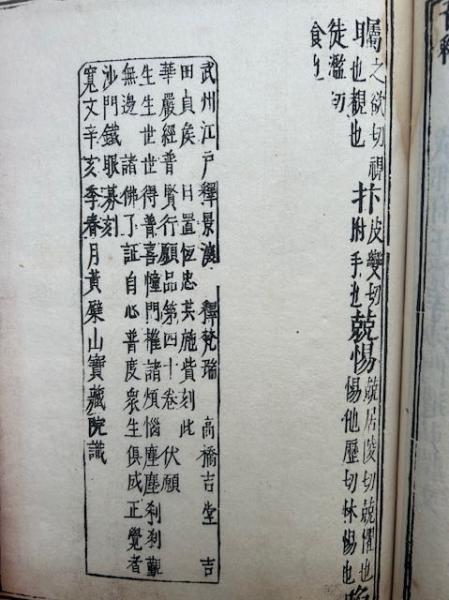 矚之欲切視 抃皮變切 兢惕兢居陵切兢懼也
耳也觀也 拊手也 惕他歷切怵惕也
徒濫切
食也
武州江戸釋景演 釋梵瑞 高橋吉堂 吉
田貞矦 日置恆忠英施貲刻此
華嚴經普賢行願品第四十卷 伏願
生生世世得普喜幢門摧諸煩惱塵塵刹刹覲
無邊 諸佛了証自心普度衆生俱成正覺者
沙門鐵眼募刻
寬文辛亥季春月黃檗山寶藏院識